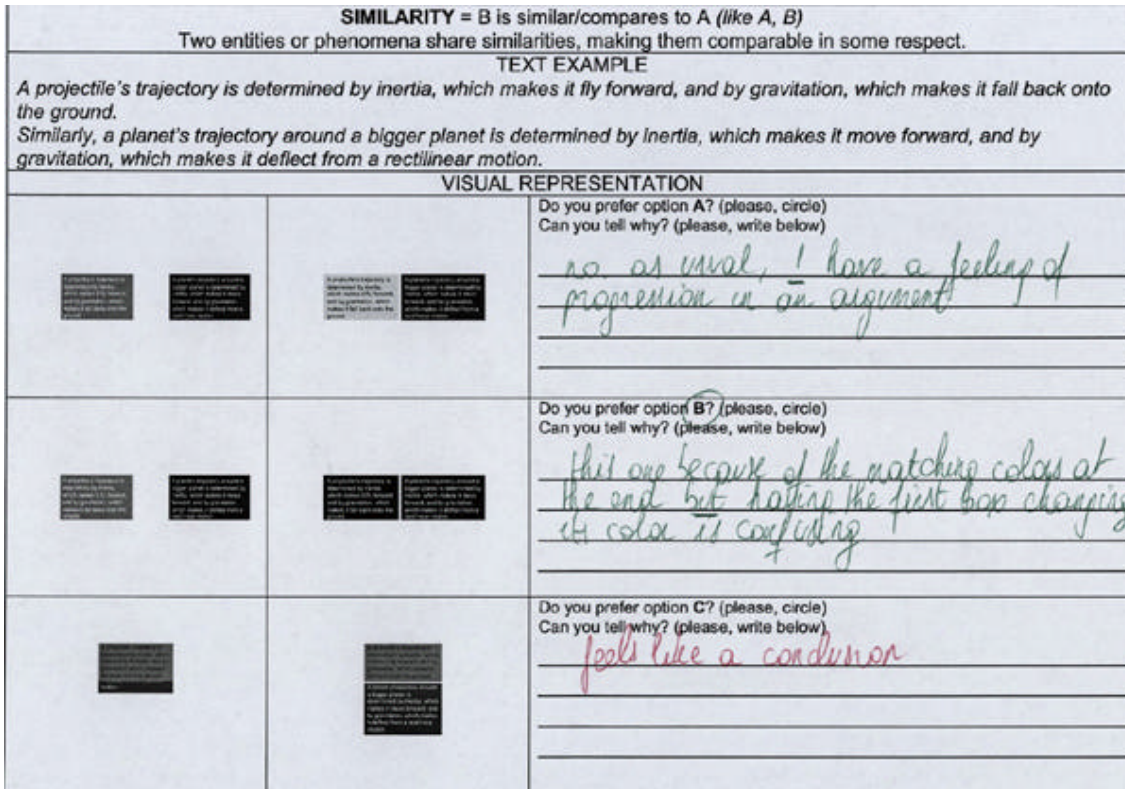 SIMILARITY = B is similar/compares to A (like A, B)
Two entities or phenomena share similarities, making them comparable in some respect.
TEXT EXAMPLE
A projectile's trajectory is determined by inertia, which makes it fly forward, and by gravitation, which makes it fall back onto
the ground.
Similarly, a planet's trajectory around a bigger planet is determined by inertia, which makes it move forward, and by
gravitation, which makes it deflect from a rectilinear motion.
VISUAL REPRESENTATION
Do you prefer option A? (please, circle)
Can you tell why? (please, write below)
no. as usual, I have a feeling of
progression in an argument
Do you prefer option B? (please, circle)
Can you tell why? (please, write below)
this one because of the matching colors at
the end but having the first box changing
its color is confusing
Do you prefer option C? (please, circle)
Can you tell why? (please, write below)
feels like a conclusion